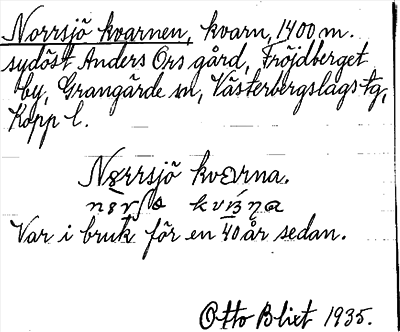 Norrsjö kvarnen, kvarn, 1400 m.
sydöst Anders Ors gård, Fröjdberget
by, Grangärde sn, Västerbergslags tg,
Kopp l.
Nørrsjö kvarna.
Var i bruk för en 40 år sedan.
Otto Blixt 1935.